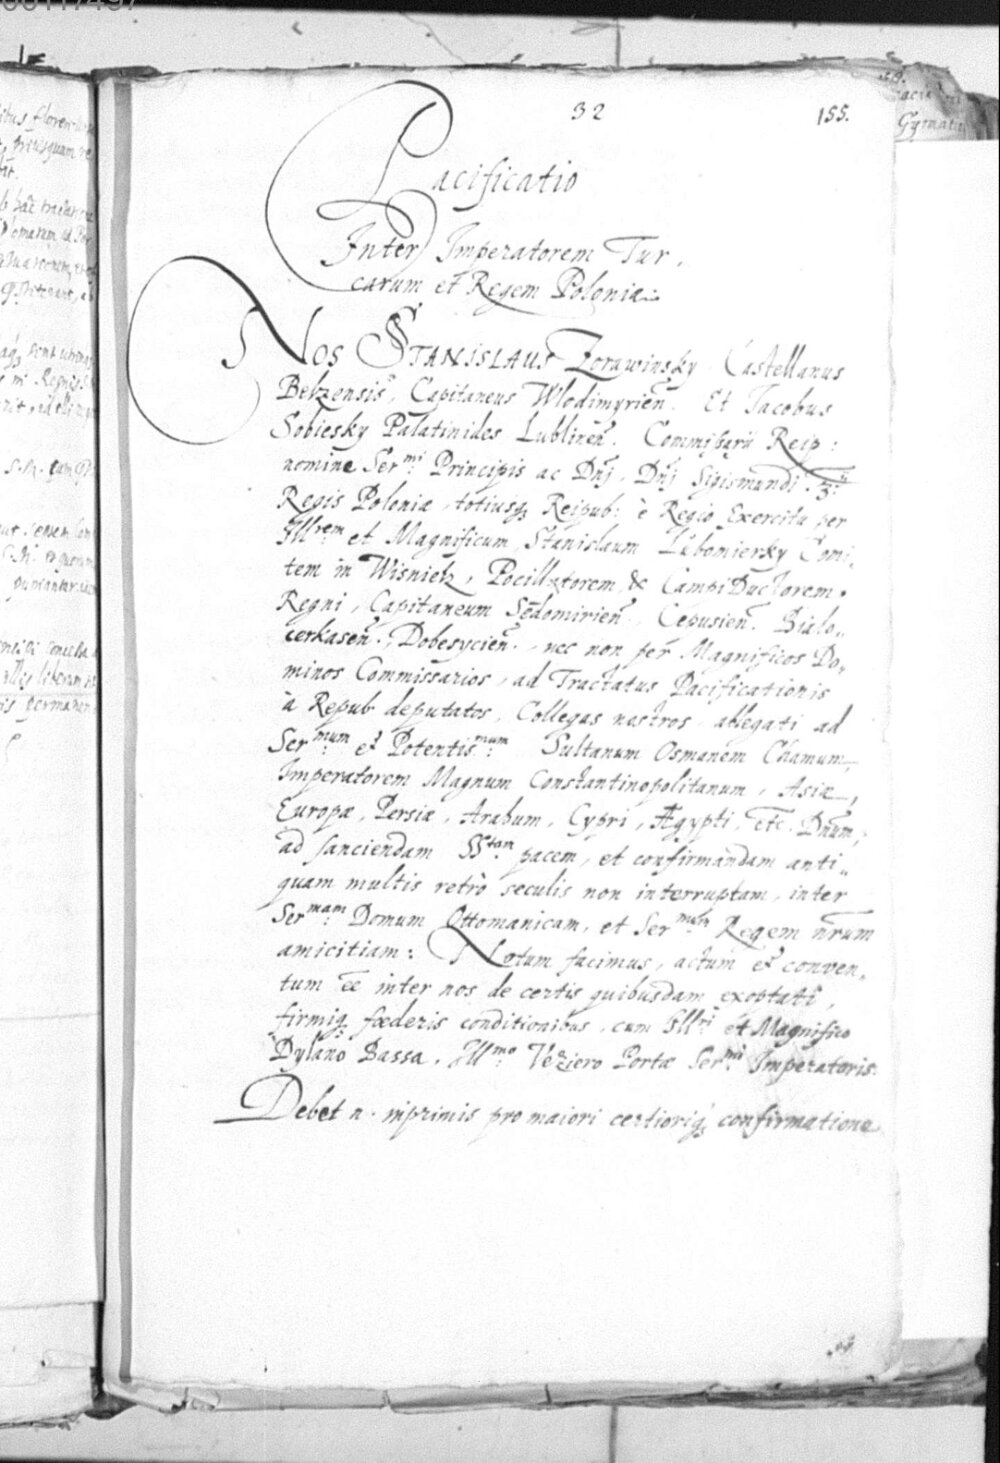 32 155.
Pacificatio
Inter Imperatorem Tur,
carum et Regem Poloniæ
NOS STANISLAUS Zorawinsky Castellanus
Belzensis, Capitaneus Wlodimyrien̄. Et Iacobus
Sobiesky Palatinides Lublinen̄. Commissarii Reip:
nomine Ser.mi Principis ac Dn̄j, Dn̄j Sigismundi 3ii
Regis Poloniæ, totiusq3 Reipub: è Regio Exercitu per
Illrem et Magnificum Stanislaum Lubomiersky Comi,
tem in Wisnielz, Pocillatorem & Campi Ductorem
Regni, Capitaneum Sēdomirien̄, Cepusien̄. Bialo,,
cerkasen̄., Dobesycien̄., nec non per Magnificos Do,,
minos Commissarios, ad Tractatus Pacificationis
à Repub deputatos, Collegas nostros ablegati ad
Ser.mum et Potentis.mum Sultanum Osmanem Chamum,
Imperatorem Magnum Constantinopolitanum, Asiæ,
Europæ, Persiæ, Arabum, Cypri, Ægypti, etc. Dn̄um,
ad sanciendam SS.tam pacem, et confirmandam anti,,
quam multis retrò seculis non interruptam, inter
Ser.mam Domum Ottomanicam, et Ser.mum Regem nr̄um
amicitiam: Notum facimus, actum et conven,
tum ēē inter nos de certis quibusdam exoptati,
firmiq3 fœderis conditionibus, cum Ill.ri et Magnifico
Dylano Bassa, Ill.mo Veziero Portæ Ser.mi Imperatoris.
Debet n. inprimis pro maiori certioriq3 confirmatione